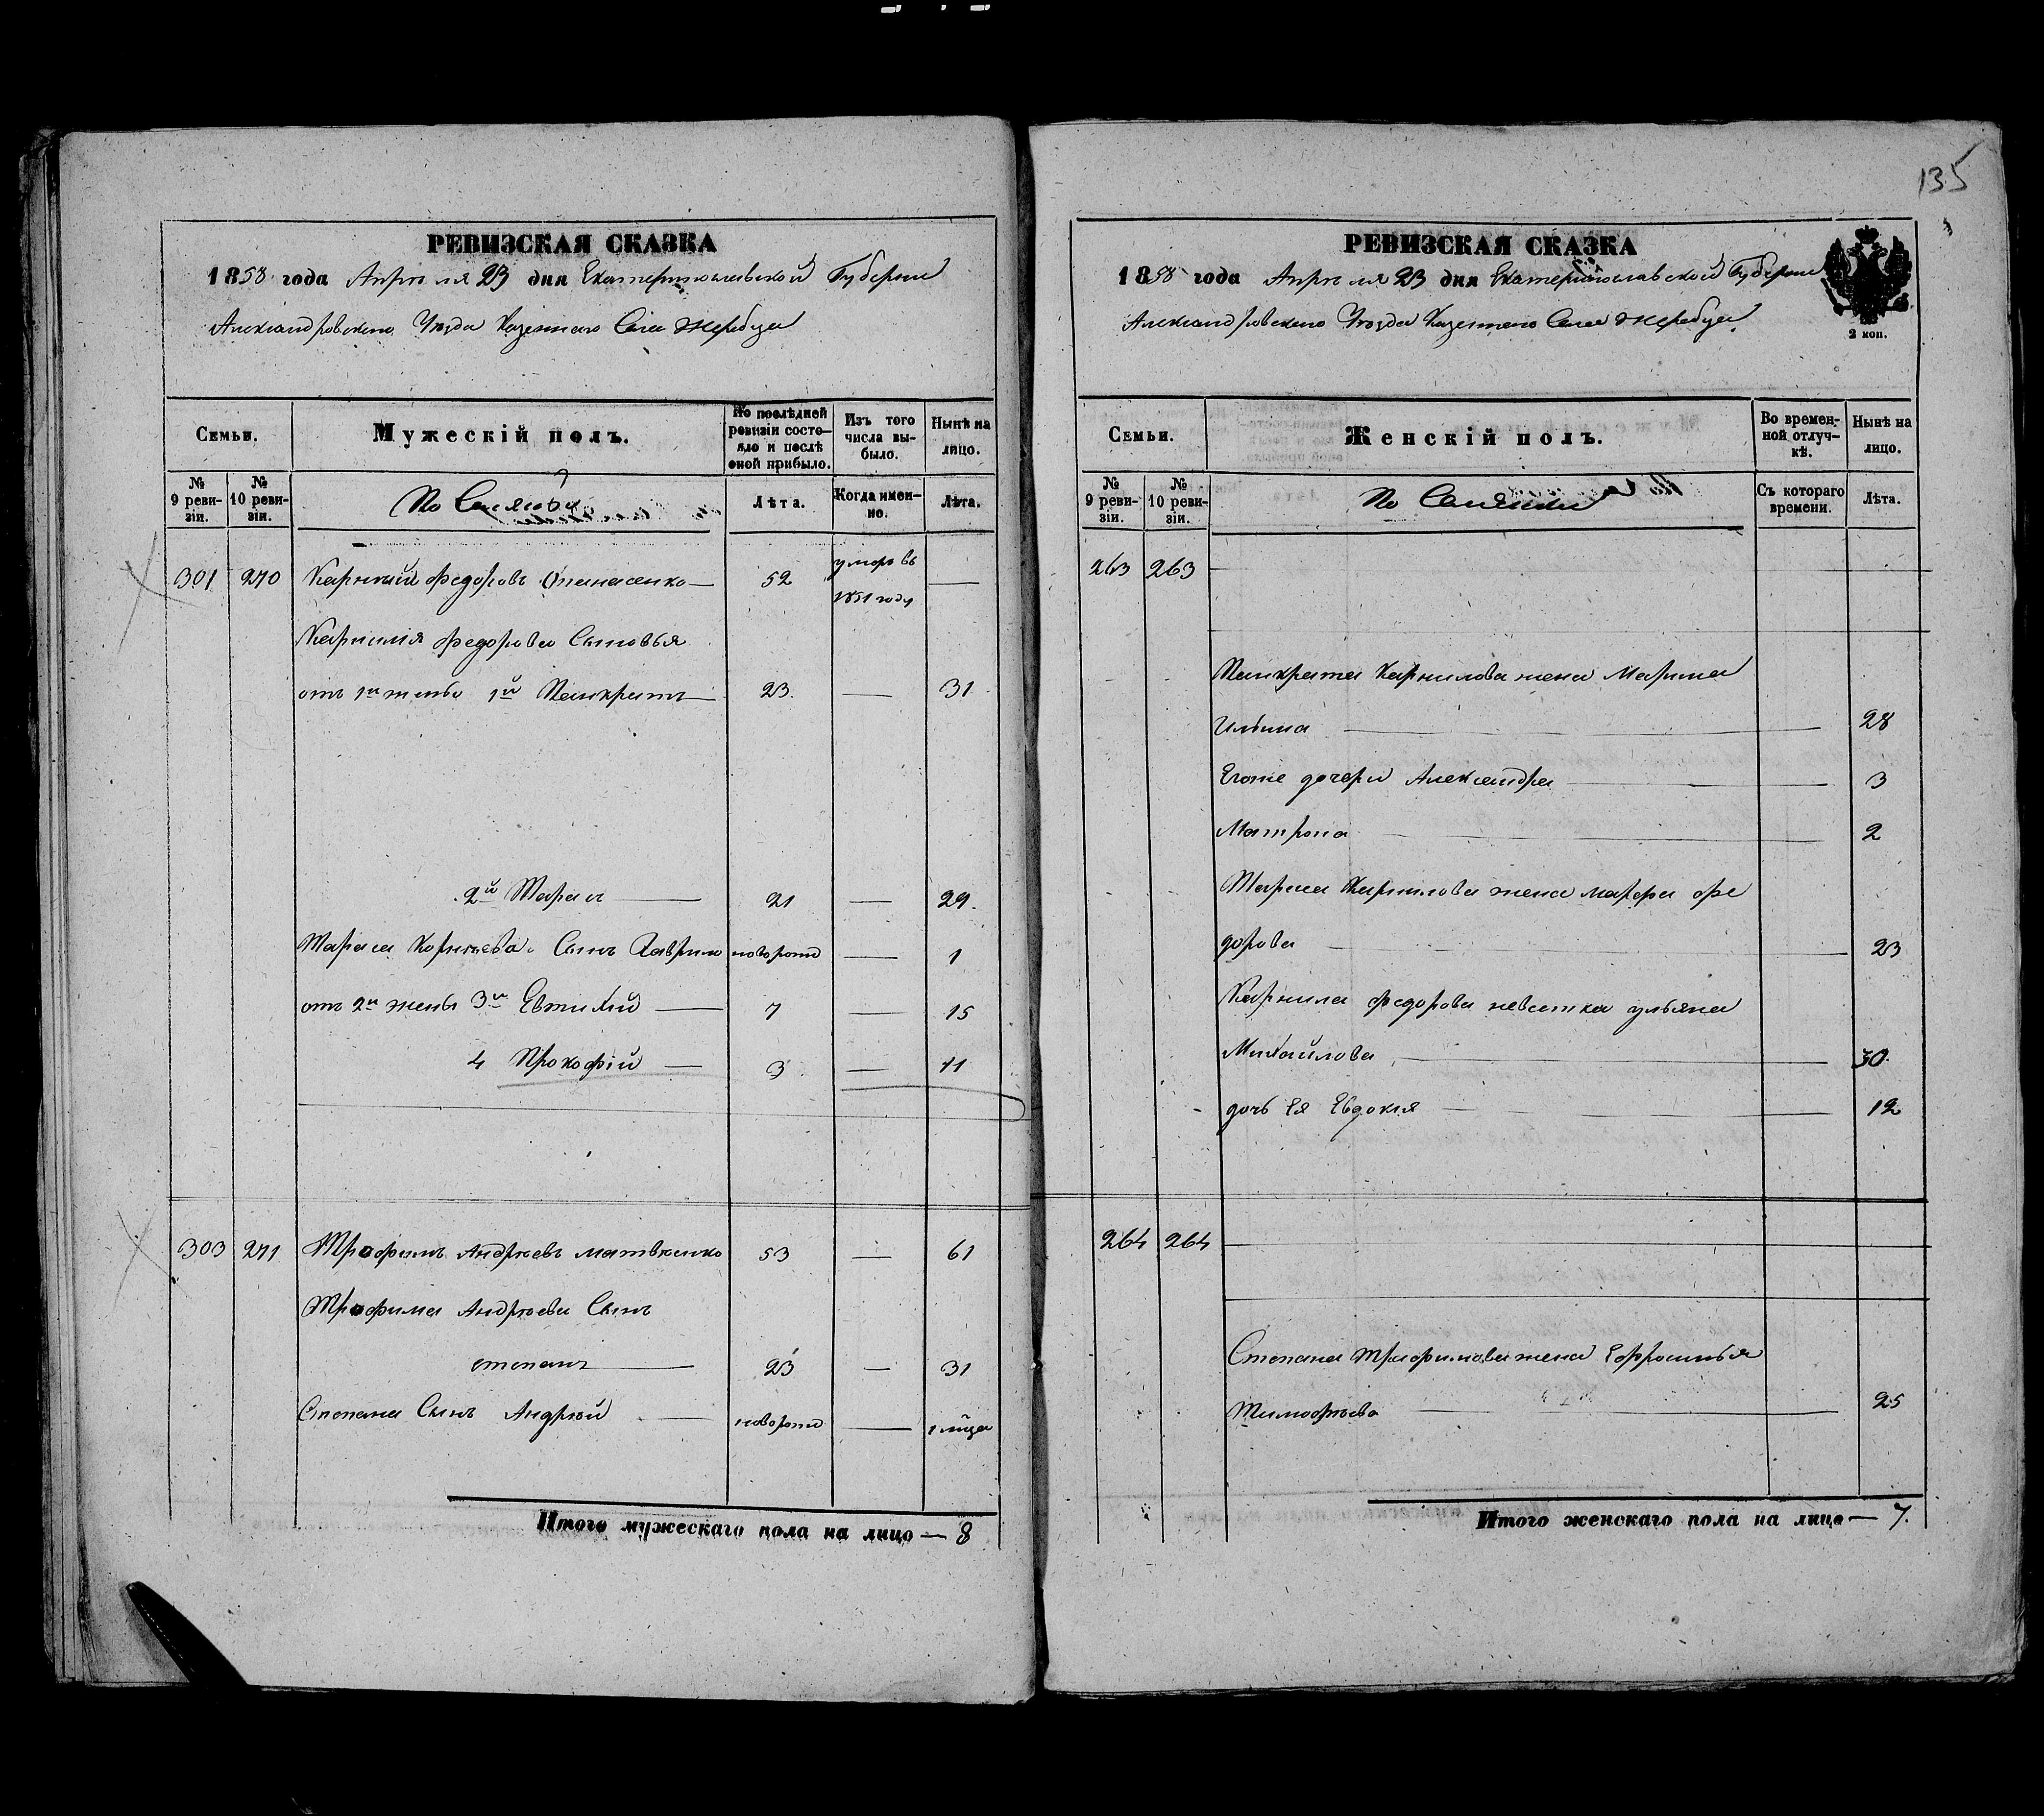 135
РЕВИЗСКАЯ СКАЗКА
1858 года Апрѣля 23 дня Екатеринославской Губернии
Александровского Уезда Казенного Села Жеребца
Семьи.
Мужескій полъ.
По послѣдней ревизіи состояло и послѣ оной прибыло.
Изъ того числа выбыло.
Нынѣ на лицо.
№ 9 ревизіи.
№ 10 ревизіи.
Лѣта.
Когда именно.
Лѣта.
301 270 Карнилий Федоровъ Опанасенко — 52 умеръ въ 1851 году —
Карнилия Федорова Сыновья
отъ 1й жены 1й Панкратъ — 23 — 31
2й Тарасъ — 21 — 29
Тараса Корнеева Сынъ Гаврило новорожд — 1
отъ 2й жены 3й Евтихий — 7 — 15
4 Прокофій — 3 — 11
303 271 Трофимъ Андреевъ Матвѣенко 53 — 61
Трофима Андреева Сынъ
степанъ — 23 — 31
Степана Сынъ Андрѣй — новорожд — 1 мѣца
Итого мужескаго пола на лицо — 8
РЕВИЗСКАЯ СКАЗКА
1858 года Апрѣля 23 дня Екатеринославской Губернии
Александровского Уезда Казенного Села Жеребца
2 коп.
Семьи.
Женскій полъ.
Во временной отлучкѣ.
Нынѣ на лицо.
№ 9 ревизіи.
№ 10 ревизіи.
Съ котораго времени.
Лѣта.
263 263
Панкрата Карнилова жена Марина
Ильина — 28
Егоже дочери Александра — 3
Матрона — 2
Тараса Карнилова жена марфа фе
дорова — 23
Карнила Федорова невестка ульяна
Михайлова — 30
дочь Ея Евдокия — 12
264 264
Степана Трофимова жена Ефросинья
Тимофѣева — 25
Итого женскаго пола на лицо — 7.